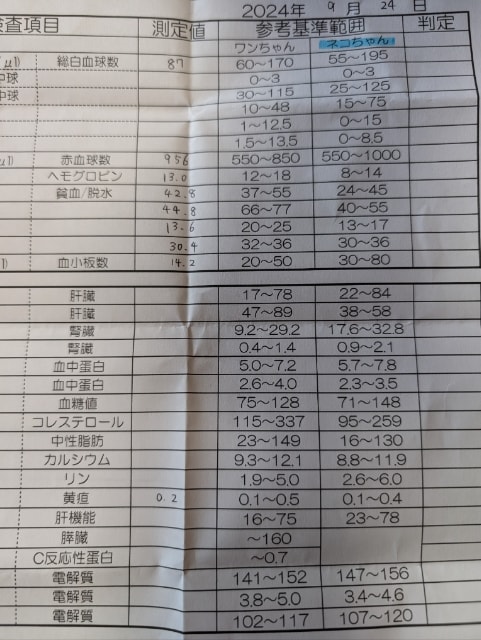 2024年 9月 24日
検査項目 測定値 参考基準範囲 判定
ワンちゃん ネコちゃん
総白血球数 87 60~170 55~195
0~3 0~3
30~115 25~125
10~48 15~75
1~12.5 0~15
1.5~13.5 0~8.5
赤血球数 956 550~850 550~1000
ヘモグロビン 13.0 12~18 8~14
貧血/脱水 42.8 37~55 24~45
44.8 66~77 40~55
13.6 20~25 13~17
30.4 32~36 30~36
血小板数 14.2 20~50 30~80
肝臓 17~78 22~84
肝臓 47~89 38~58
腎臓 9.2~29.2 17.6~32.8
腎臓 0.4~1.4 0.9~2.1
血中蛋白 5.0~7.2 5.7~7.8
血中蛋白 2.6~4.0 2.3~3.5
血糖値 75~128 71~148
コレステロール 115~337 95~259
中性脂肪 23~149 16~130
カルシウム 9.3~12.1 8.8~11.9
リン 1.9~5.0 2.6~6.0
黄疸 0.2 0.1~0.5 0.1~0.4
肝機能 16~75 23~78
膵臓 ~160
C反応性蛋白 ~0.7
電解質 141~152 147~156
電解質 3.8~5.0 3.4~4.6
電解質 102~117 107~120